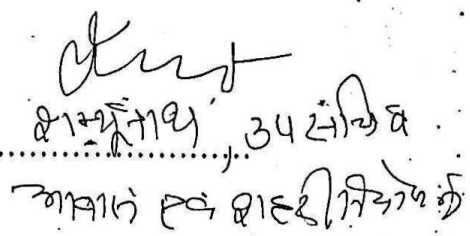 शम्भूनाथ, उप सचिव
आवास एवं शहरी नियोजन